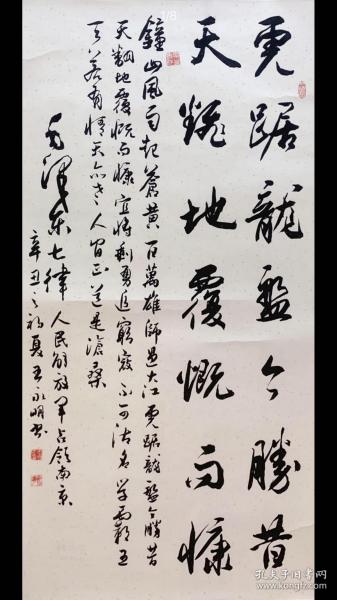 虎踞龍盤今勝昔
天翻地覆慨而慷
鐘山風雨起蒼黄百萬雄師過大江虎踞龍盤今勝昔
天翻地覆慨而慷宜將剩勇追窮寇不可沽名學霸王
天若有情天亦老人間正道是滄桑
毛澤东七律人民解放军占领南京
辛丑之初夏王永明书
1/8
孔夫子旧书网